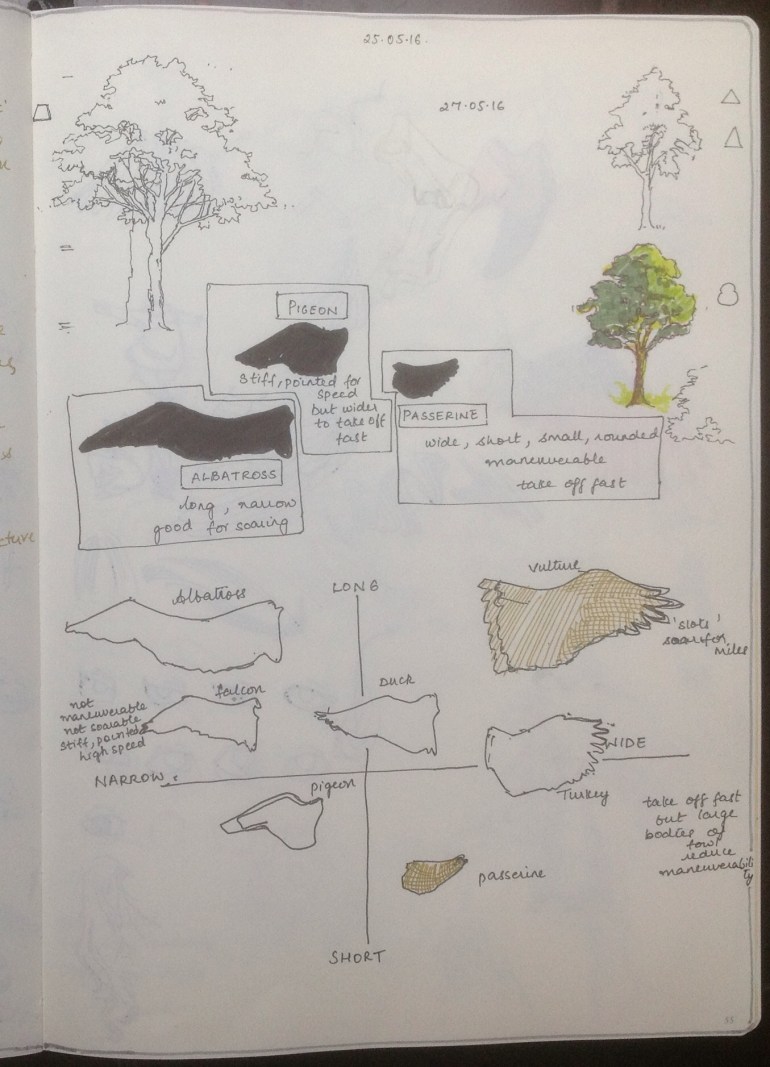 25.05.16.
27.05.16
PIGEON
stiff, pointed for
speed
but wider
to take off
fast
PASSERINE
wide, short, small, rounded
maneuverable
take off fast
ALBATROSS
long, narrow
good for soaring
Albatross
LONG
vulture
'slots'
soar for
miles
falcon
DUCK
not
maneuverable
not soarable
stiff, pointed
high speed
WIDE
NARROW
pigeon
Turkey
take off fast
but large
bodies of
fowl
reduce
maneuverabili
ty
passerine
SHORT
55